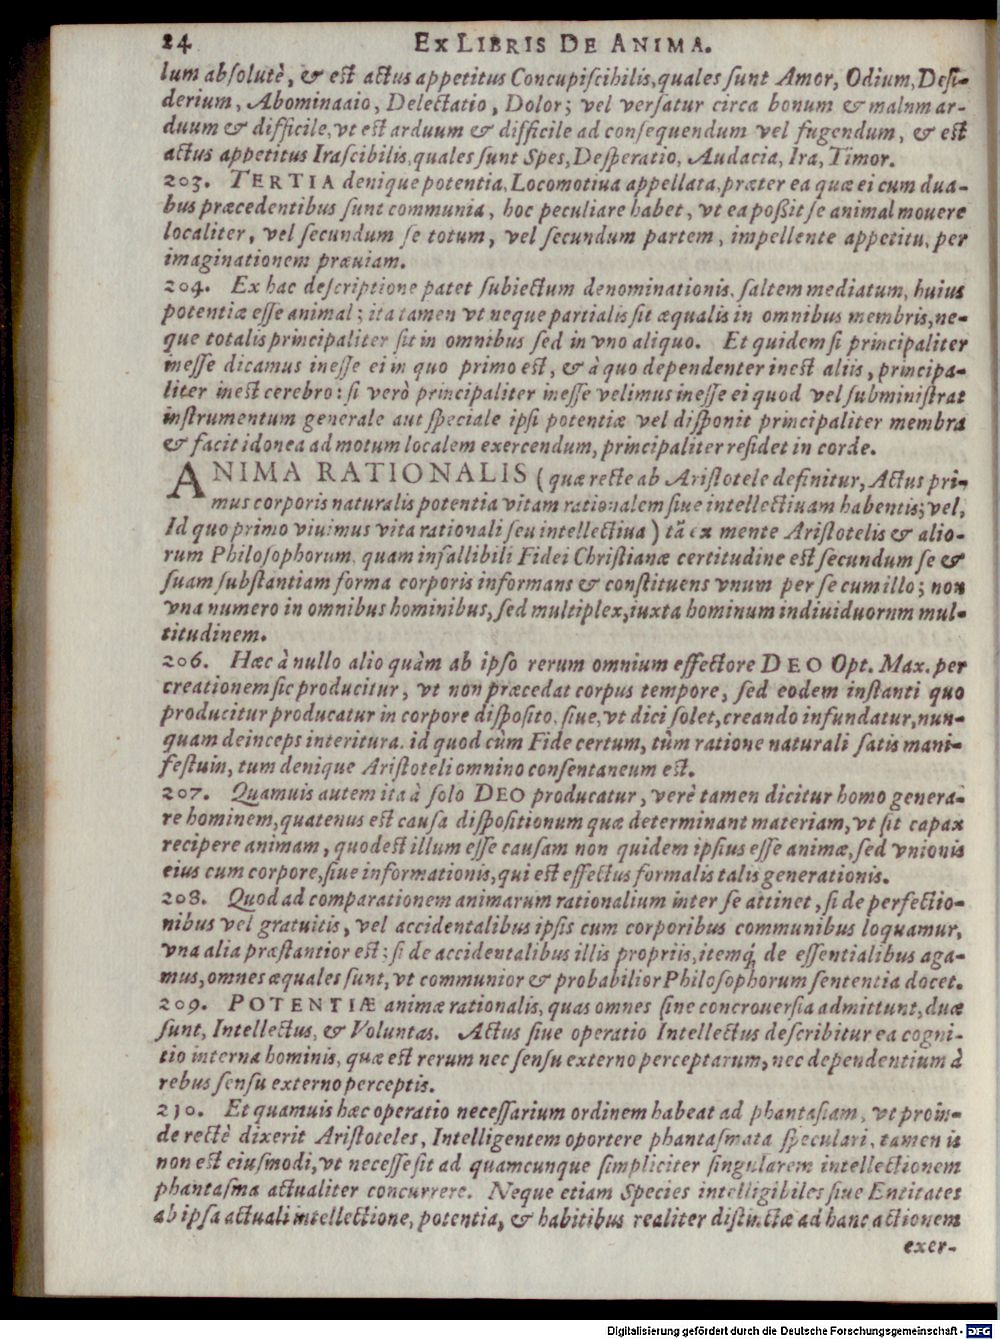 24 EX LIBRIS DE ANIMA.
lum absolutè, & est actus appetitus Concupiscibilis, quales sunt Amor, Odium, Desi-
derium, Abominaaio, Delectatio, Dolor; vel versatur circa bonum & malnm ar-
duum & difficile, vt est arduum & difficile ad consequendum vel fugendum, & est
actus appetitus Irascibilis, quales sunt Spes, Desperatio, Audacia, Ira, Timor.
203. TERTIA denique potentia, Locomotiua appellata, præter ea quæ ei cum dua-
bus præcedentibus sunt communia, hoc peculiare habet, vt ea poßit se animal mouere
localiter, vel secundum se totum, vel secundum partem, impellente appetitu, per
imaginationem præuiam.
204. Ex hac descriptione patet subiectum denominationis, saltem mediatum, huius
potentiæ esse animal; ita tamen vt neque partialis sit æqualis in omnibus membris, ne-
que totalis principaliter sit in omnibus sed in vno aliquo. Et quidem si principaliter
inesse dicamus inesse ei in quo primo est, & à quo dependenter inest aliis, principa-
liter inest cerebro: si verò principaliter inesse velimus inesse ei quod vel subministrat
instrumentum generale aut speciale ipsi potentiæ vel disponit principaliter membra
& facit idonea ad motum localem exercendum, principaliter residet in corde.
ANIMA RATIONALIS (quæ recte ab Aristotele definitur, Actus pri-
mus corporis naturalis potentia vitam rationalem siue intellectiuam habentis; vel,
Id quo primo viuimus vita rationali seu intellectiua) tã ex mente Aristotelis & alio-
rum Philosophorum, quam infallibili Fidei Christianæ certitudine est secundum se &
suam substantiam forma corporis informans & constituens vnum per se cum illo; non
vna numero in omnibus hominibus, sed multiplex, iuxta hominum indiuiduornm mul-
titudinem.
206. Hæc à nullo alio quàm ab ipso rerum omnium effectore DEO Opt. Max. per
creationem sic producitur, vt non præcedat corpus tempore, sed eodem instanti quo
producitur producatur in corpore disposito, siue, vt dici solet, creando infundatur, nun-
quam deinceps interitura. id quod cùm Fide certum, tùm ratione naturali satis mani-
festum, tum denique Aristoteli omnino consentaneum est.
207. Quamuis autem ita à solo DEO producatur, verè tamen dicitur homo genera-
re hominem, quatenus est causa dispositionum quæ determinant materiam, vt sit capax
recipere animam, quod est illum esse causam non quidem ipsius esse animæ, sed vnionis
eius cum corpore, siue informationis, qui est effectus formalis talis generationis.
208. Quod ad comparationem animarum rationalium inter se attinet, si de perfectio-
nibus vel gratuitis, vel accidentalibus ipsis cum corporibus communibus loquamur,
vna alia præstantior est: si de accidentalibus illis propriis, itemq́; de essentialibus aga-
mus, omnes æquales sunt, vt communior & probabilior Philosophorum sententia docet.
209. POTENTIÆ animæ rationalis, quas omnes sine concrouersia admittunt, duæ
sunt, Intellectus, & Voluntas. Actus siue operatio Intellectus describitur ea cogni-
tio interna hominis, quæ est rerum nec sensu externo perceptarum, nec dependentium à
rebus sensu externo perceptis.
210. Et quamuis hæc operatio necessarium ordinem habeat ad phantasiam, vt proin-
de rectè dixerit Aristoteles, Intelligentem oportere phantasmata speculari, tamen is
non est eiusmodi, vt necesse sit ad quamcunque simpliciter singularem intellectionem
phantasma actualiter concurrere. Neque etiam Species intelligibiles siue Entitates
ab ipsa actuali intellectione, potentia, & habitibus realiter distinctæ ad hanc actionem
exer-
Digitalisierung gefördert durch die Deutsche Forschungsgemeinschaft - DFG